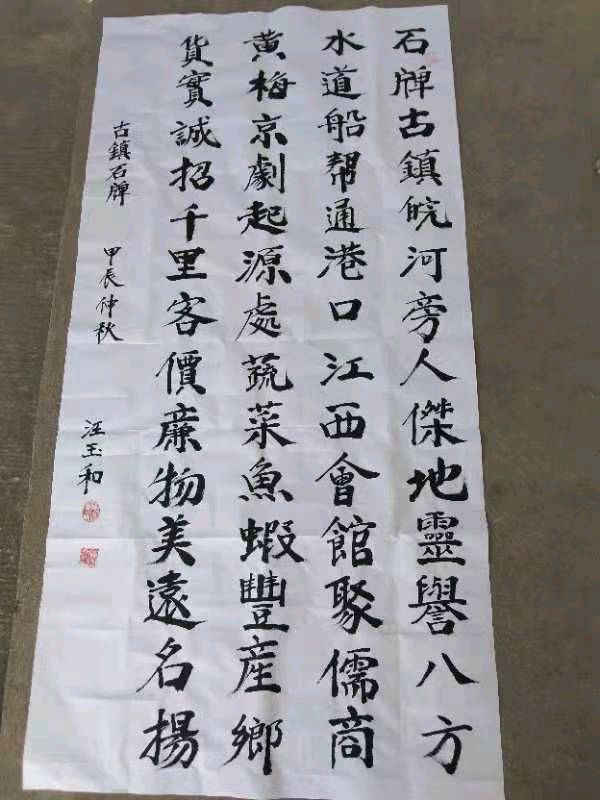 石牌古鎮皖河旁人傑地靈譽八方
水道船幫通港口江西會館聚儒商
黄梅京劇起源處蔬菜魚蝦豐産鄉
貨實誠招千里客價亷物美遠名揚
古鎮石牌 甲辰仲秋 汪玉和